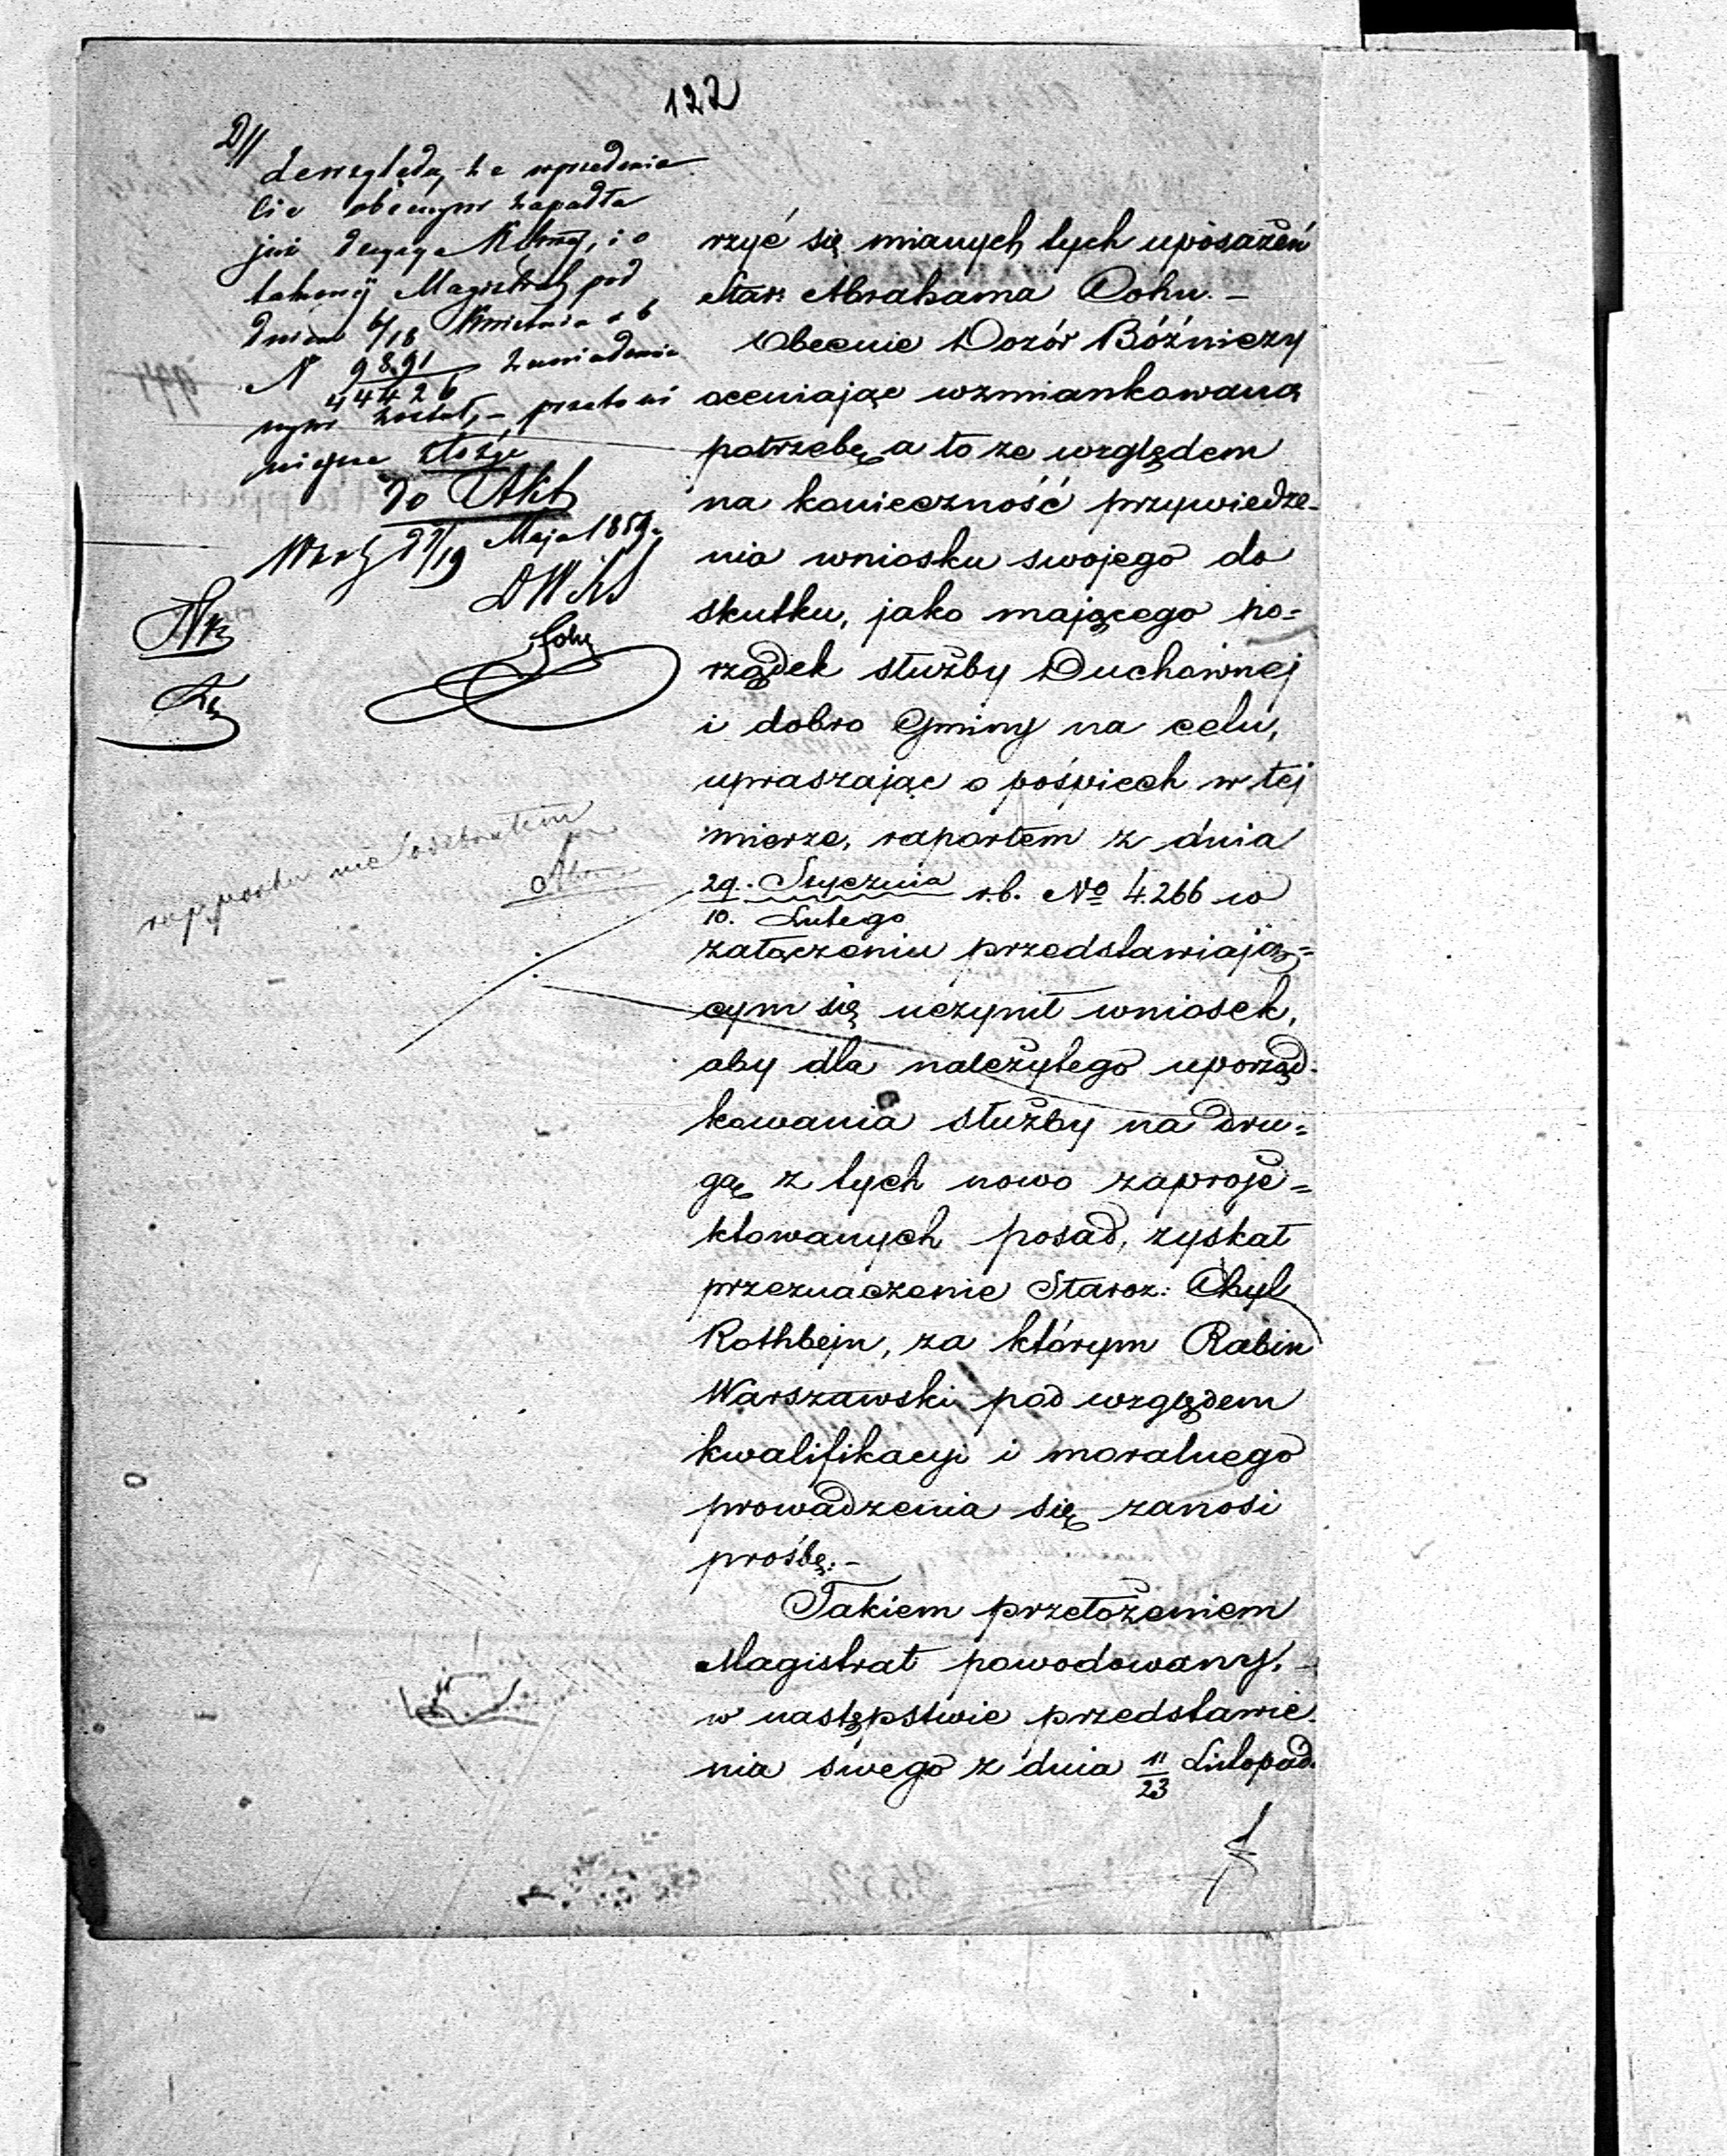 122
D//
Ze względu, że w przedmio
cie obecnym zapadła
już decyzya i o
takowej Magistrat pod
dniem 6/18 Kwietnia r b
N 9891/44426 zawiadomio
nym został, – przeto ni
niejsze złożyć
do Akt
19 Maja 1859.
rapportu nie odebrałem
rzyć się mianych tych uposażeń
Star: Abrahama Cohn. –
Obecnie Dozór Bóżniczy
oceniając wzmiankowaną
potrzebę a to ze względem
na konieczność przywiedze-
nia wniosku swojego do
skutku, jako mającego po=
rządek służby Duchownej
i dobro Gminy na celu,
upraszając o pośpiech w tej
mierze, raportem z dnia
29. Stycznia/10. Lutego r.b. No 4.266 w
załączeniu przedstawiają=
cym się uczynił wniosek,
aby dla należytego uporząd-
kowania służby na dru=
gą z tych nowo zaproje=
ktowanych posad, zyskał
przeznaczenie Staroz: Chyl
Rothbejn, za którym Rabin
Warszawski pod względem
kwalifikacyi i moralnego
prowadzenia się zanosi
prośbę. –
Takiem przełożeniem
Magistrat powodowany,
w następstwie przedstawie-
nia swego z dnia 11/23 Listopad.